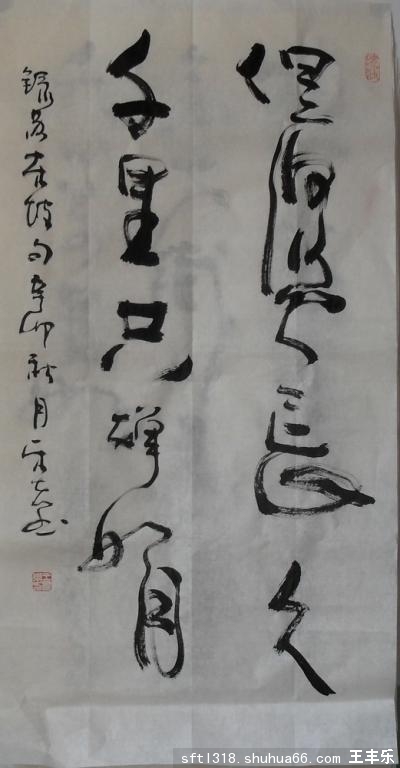 但願人長久
千里只嬋娟
錄苏东坡句辛卯秋月丰乐书
sftl318.shuhua66.com 王丰乐